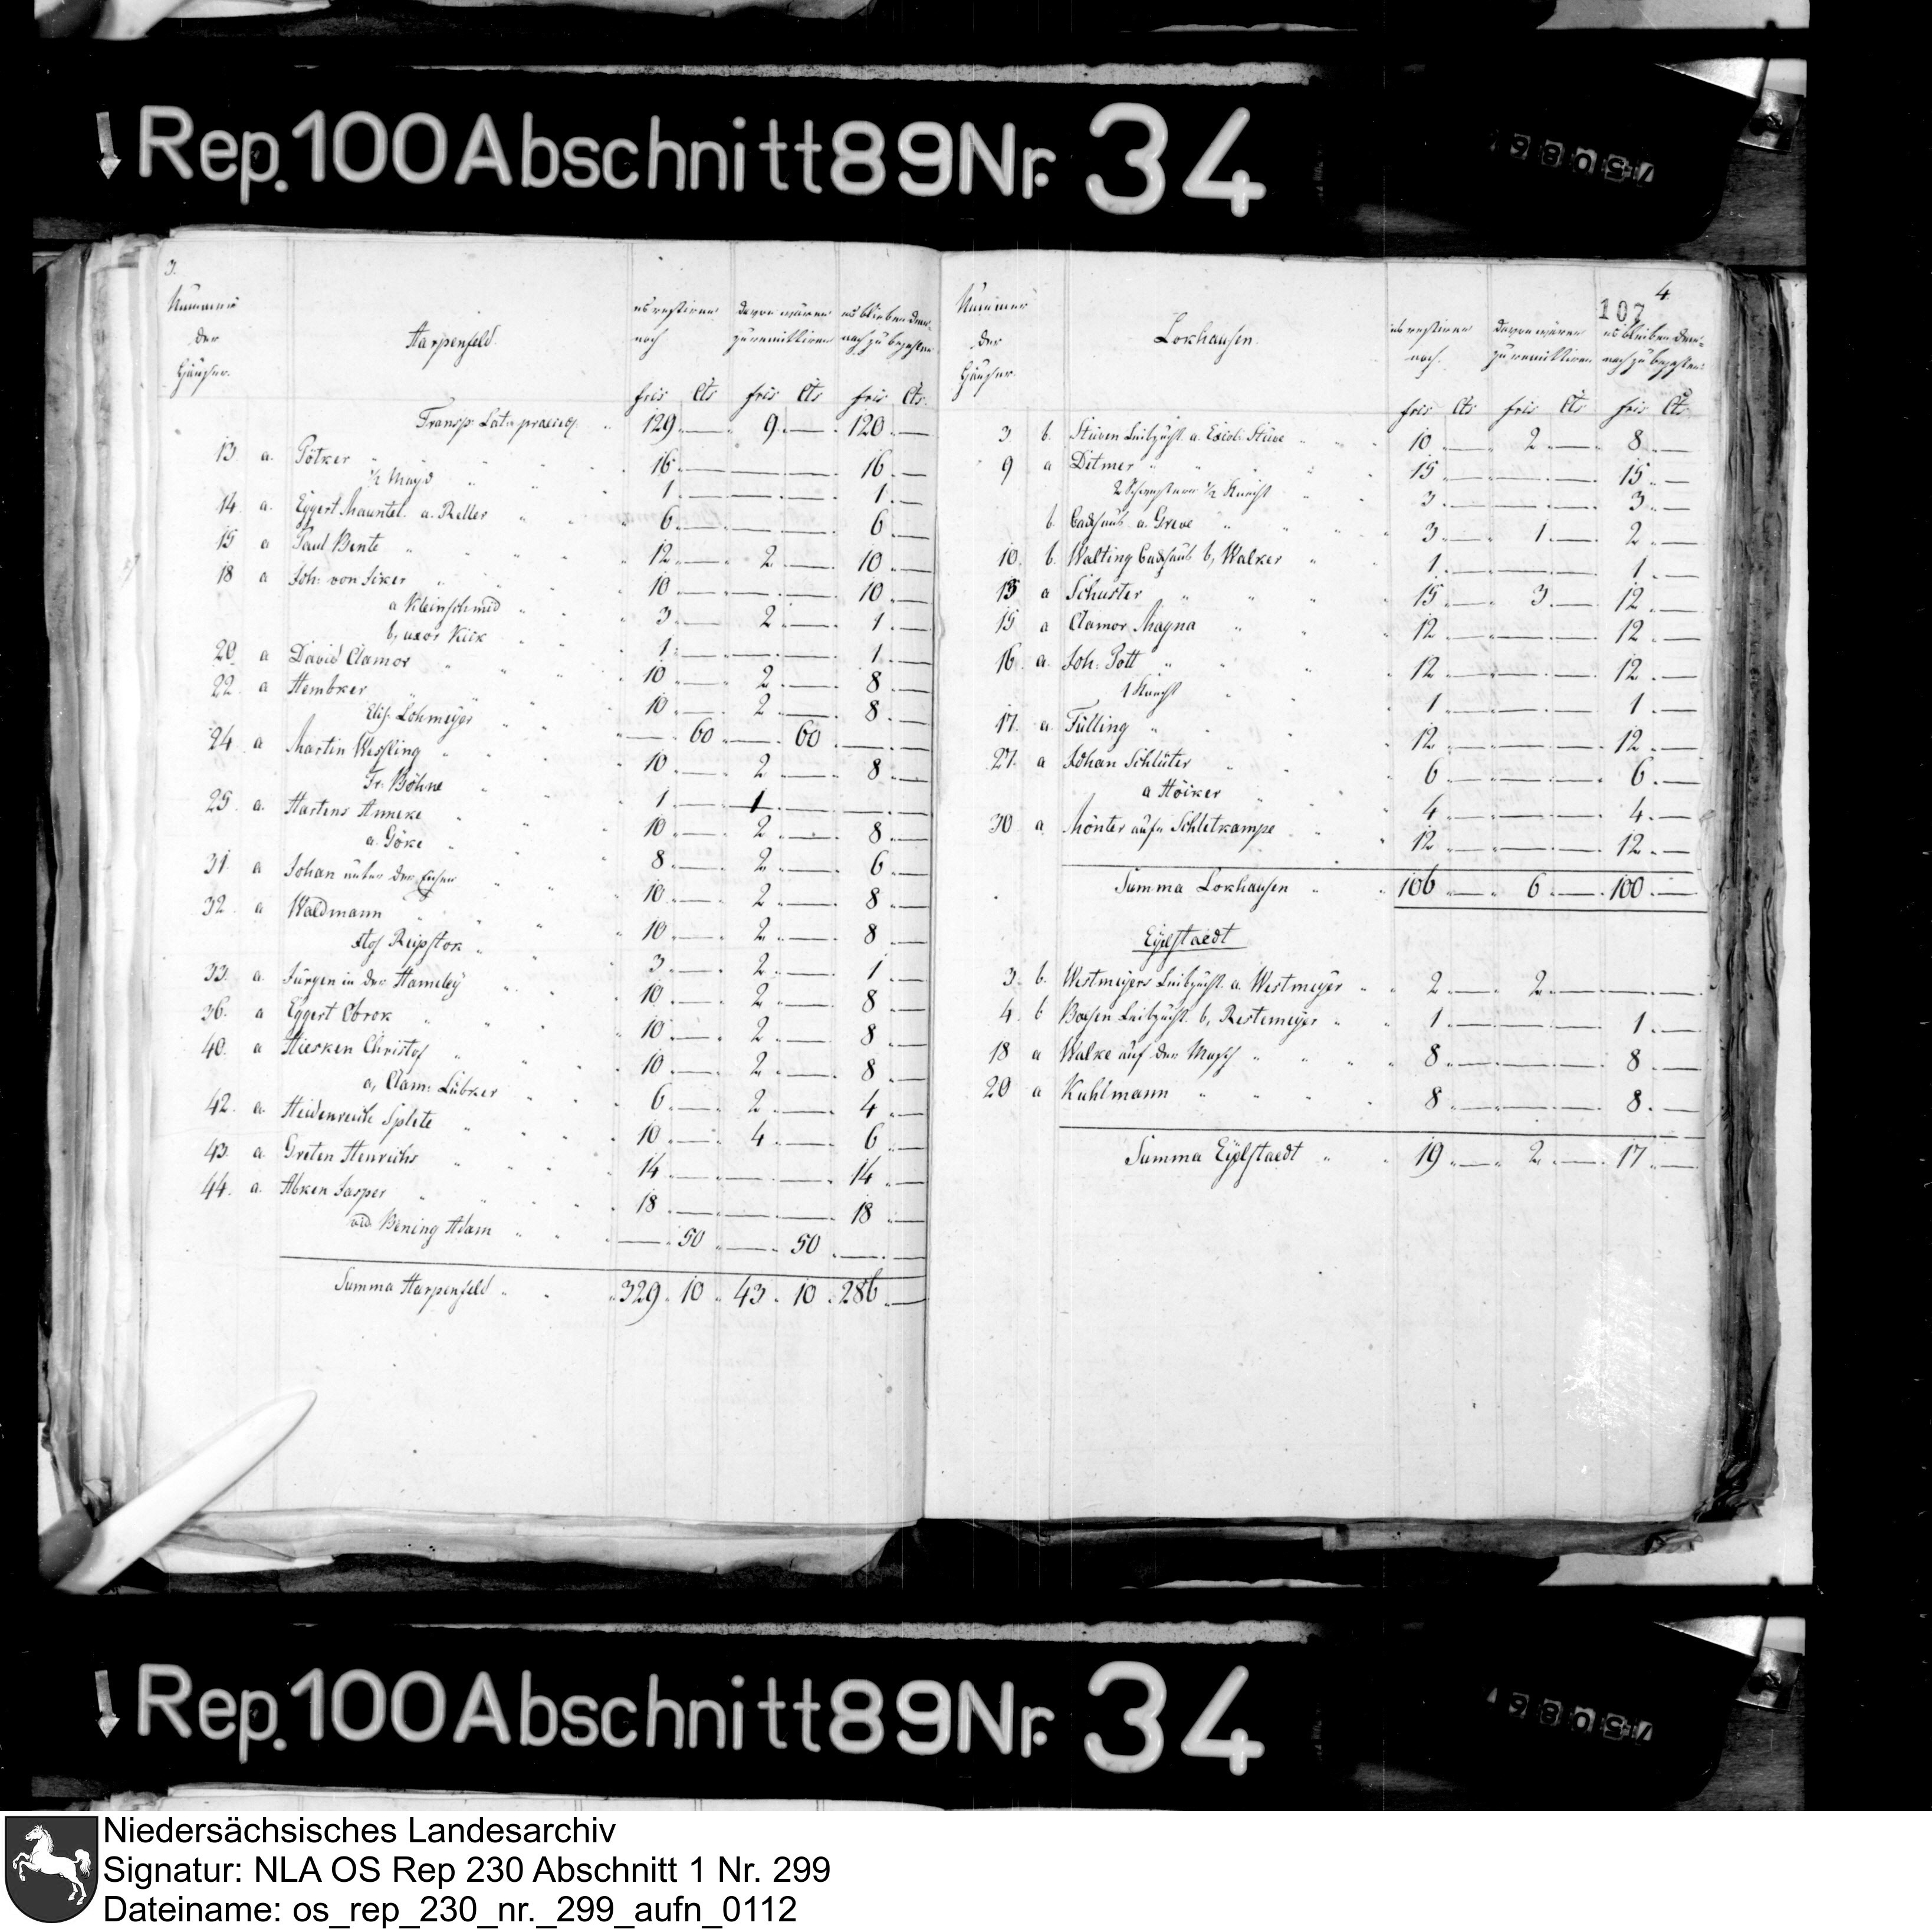 Rep. 100 Abschnitt 89 Nr. 34
3.
Nummer der Häuser.
Harpenfeld.
es restiren noch
davon wären zu remittiren
es blieben dem- nach zu bezahlen
frcs Cts frcs Cts frcs Cts.
Transp: Lat: praeced. 129 — 9 — 120 —
13 a. Pötker 16 — — — 16 —
1/2 Magd 1 — — — 1 —
14 a. Eggert Mauntel a. Reller 6 — — — 6 —
15 a Paul Bente 12 — 2 — 10 —
18 a Joh: von Siker 10 — — — 10 —
a Kleinschmid 3 — 2 — 1 —
b, uxor Kück 1 — — — 1 —
20 a David Clamor 10 — 2 — 8 —
22 a Hembker 10 — 2 — 8 —
Elis. Lohmeyer — 60 — 60 — —
24 a Martin Wessling 10 — 2 — 8 —
Fr: Böhne 1 — 1 — — —
25 a. Hartens Anneke 10 — 2 — 8 —
a. Göke 8 — 2 — 6 —
31. a Johan unter den Eichen 10 — 2 — 8 —
32. a Waldmann 10 — 2 — 8 —
Stof Reipstok 3 — 2 — 1 —
33. a Jürgen in der Hameley 10 — 2 — 8 —
36. a Eggert Obrok 10 — 2 — 8 —
40. a Hierken Christof 10 — 2 — 8 —
a, Clam: Lübker 6 — 2 — 4 —
42. a. Heidenreich Splete 10 — 4 — 6 —
43. a Greten Henrichs 14 — — — 14 —
44. a. Abken Jasper 18 — — — 18 —
vid. Bening Adam — 50 — 50 — —
Summa Harpenfeld 329 10 43 10 286 —
4.
107
Nummer der Häuser.
Lokhausen.
es restiren noch.
davon wären zu remittiren
es bleiben dem- nach zu bezahlen:
frcs Cts frcs Cts frcs Cts
3. b. Stüven Leibzucht a. Stüve 10 — 2 — 8 —
9 a Ditmer 15 — — — 15 —
2 Schwestern 1/2 Knecht 3 — — — 3 —
b. Backhaus a. Greve 3 — 1 — 2 —
10. b. Walting Backhaus b, Walker 1 — — — 1 —
13 a Schuster 15 — 3 — 12 —
15 a Clamor Magna 12 — — — 12 —
16. a. Joh: Pott 12 — — — 12 —
1 Knecht 1 — — — 1 —
17. a. Fülling 12 — — — 12 —
27. a Johan Schlüter 6 — — — 6 —
a Höcker 4 — — — 4 —
30 a Mönter aufn Schletkampe 12 — — — 12 —
Summa Lokhausen 106 — 6 — 100 —
Eyelstaedt
3. b. Westmeyers Leibzucht a. Westmeyer 2 — 2 — — —
4. b Boesen Leibzucht. b, Restemeyer 1 — — — 1 —
18 a Walke auf der Masch 8 — — — 8 —
20 a Kuhlmann 8 — — — 8 —
Summa Eyelstaedt 19 — 2 — 17 —
Rep. 100 Abschnitt 89 Nr. 34
Niedersächsisches Landesarchiv
Signatur: NLA OS Rep 230 Abschnitt 1 Nr. 299
Dateiname: os_rep_230_nr._299_aufn_0112